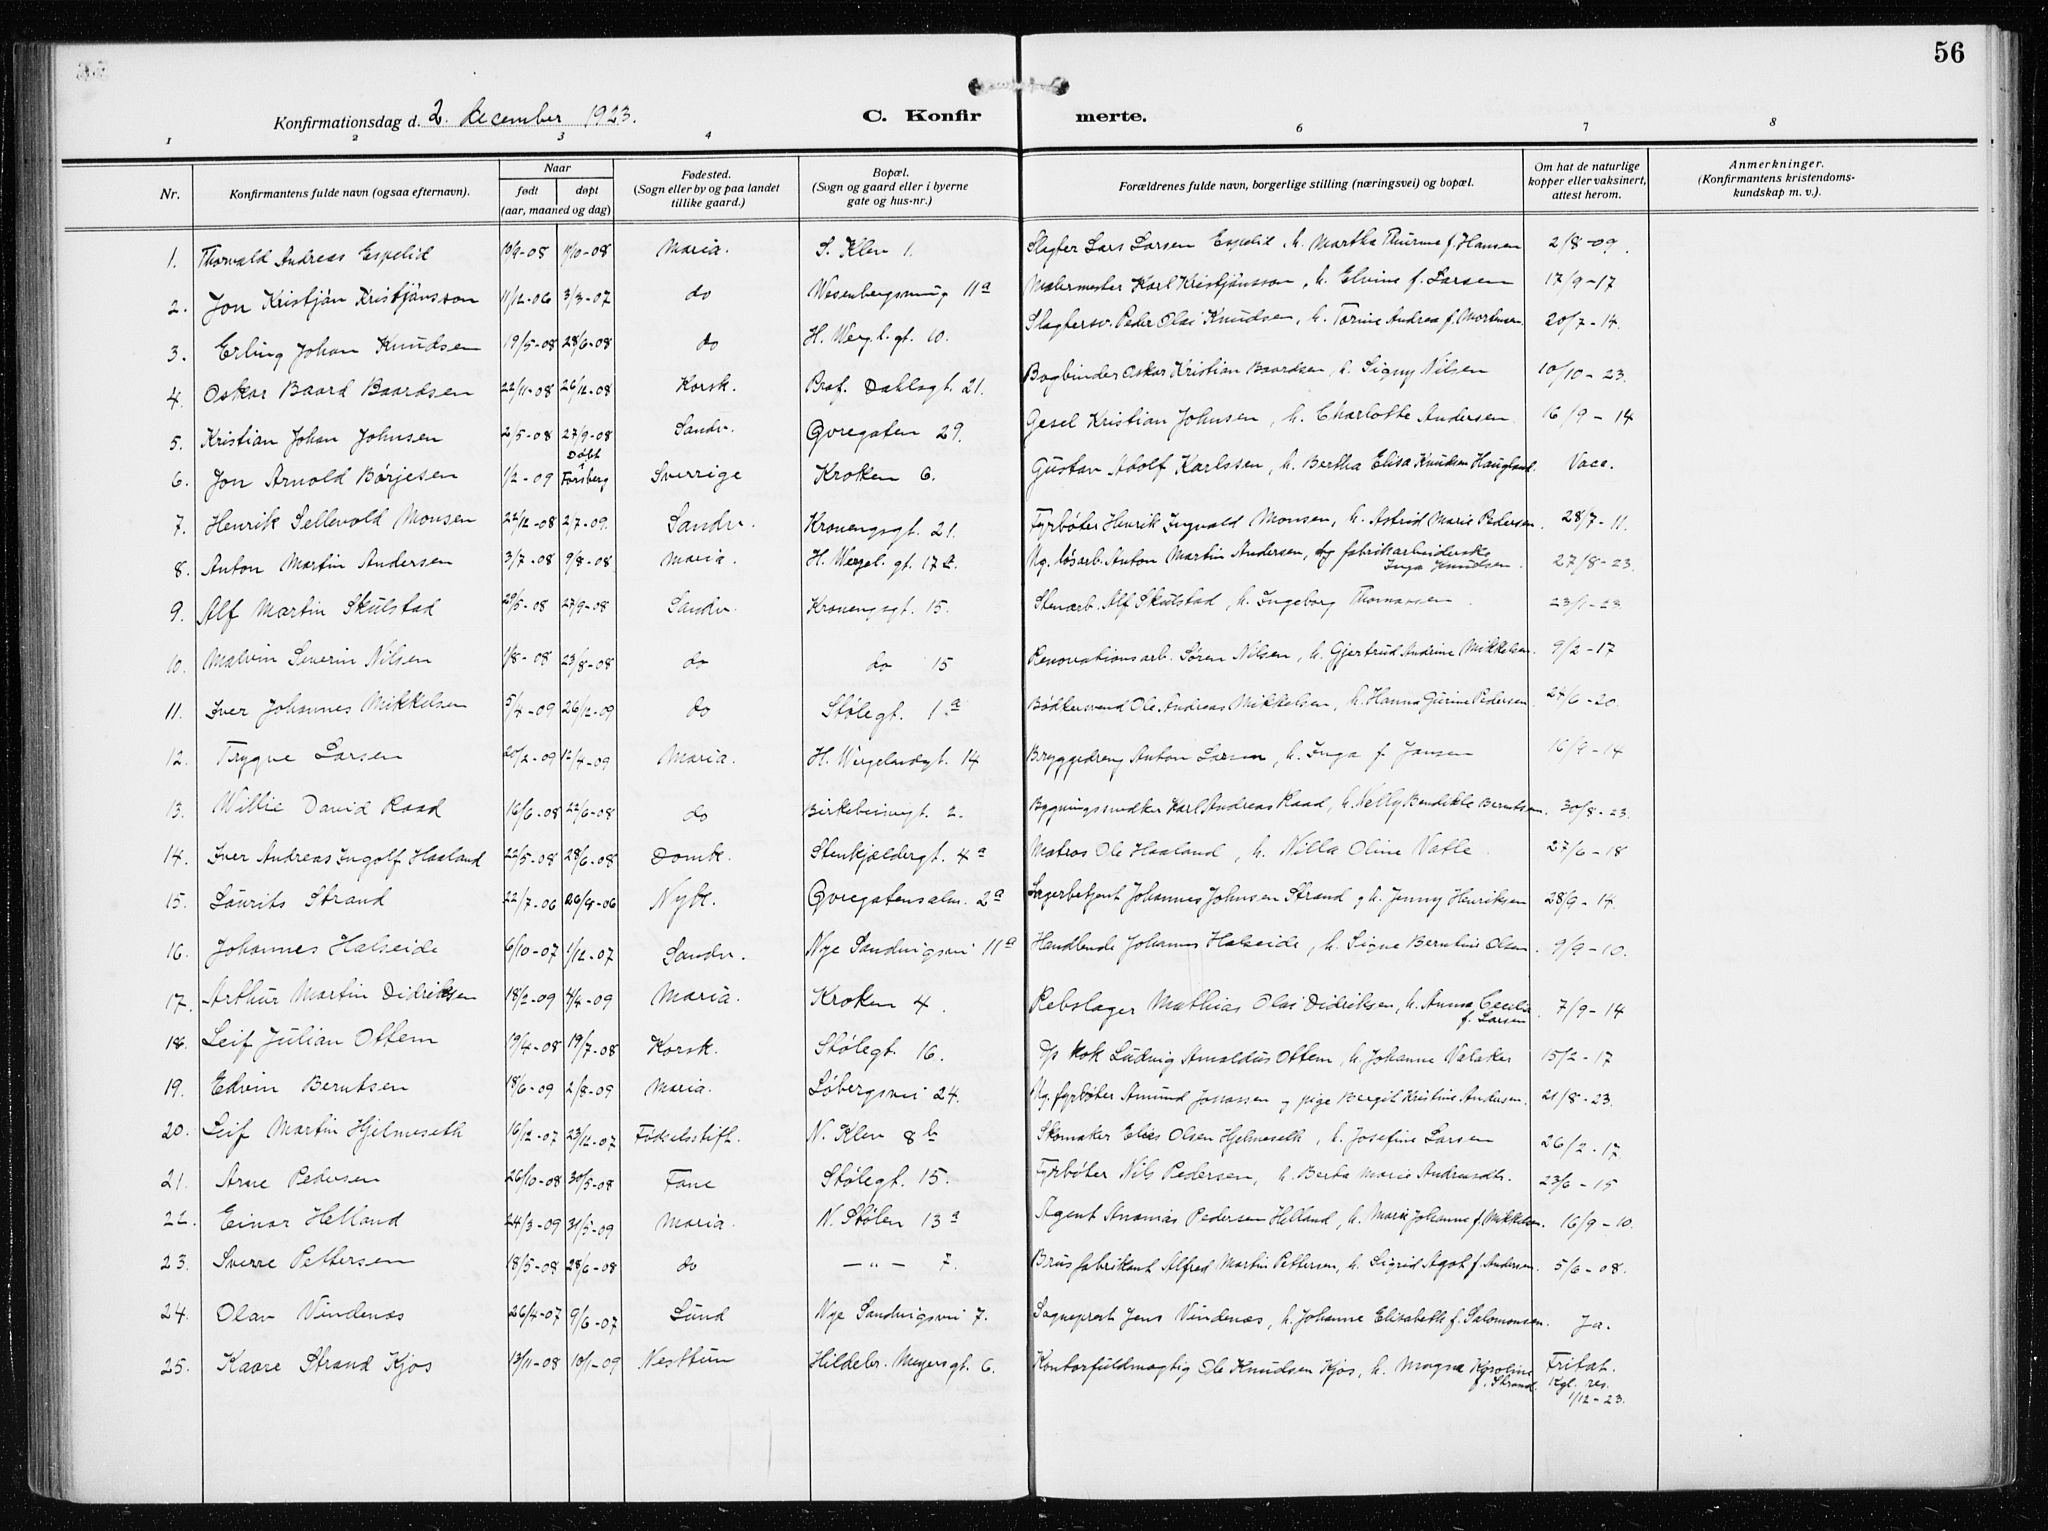 56
Konfirmationsdag d. 2. december 1923.
C. Konfirmerte.
1 2 3 4 6 7 8
Nr. Konfirmantens fulde navn (ogsaa efternavn). Naar født døpt (aar, maaned og dag) Fødested. (Sogn eller by og paa landet tillike gaard.) Bopæl. (Sogn og gaard eller i byerne gate og hus-nr.) Forældrenes fulde navn, borgerlige stilling (næringsvei) og bopæl. Om hat de naturlige kopper eller vaksinert, attest herom. Anmerkninger. (Konfirmantens kristendomskundskap m. v.).
1. Thorvald Andreas Espelid 10/9-08 11/10-08 Maria. S. Klev 1. Slagter Lars Larsen Espelid h. Martha Thurine f. Hansen 2/8-09.
2. Jon Kristján Kristjánsson 11/12-06 3/3-07 do Wesenbergsmug 11a Malermester Karl Kristjánsson, h. Elvine f. Larsen 17/9-17
3. Erling Johan Knudsen 19/5-08 28/6-08 do H. Wergl. gt. 10. Slagtersv. Peder Olai Knudsen, h. Torine Andrea f. Mortensen 20/7-14.
4. Oskar Baard Baardsen 22/11-08 26/12-08 Korsk. Prof. Dahlsgt. 21. Bogbinder Oskar Kristian Baardsen, h. Signy Nilsen 10/10-23.
5. Kristian Johan Johnsen 2/5-08 27/9-08 Sandv. Øvregaten 29. Gesel Kristian Johnsen, h. Charlotte Andersen 16/9-14
6. Jon Arnold Børjesen 1/2-09 Døbt i Forsberg Sverrige Kroken 6. Gustav Adolf Karlssen, h. Bertha Elisa Knudsen Haugland Vacc.
7. Henrik Sellevold Monsen 22/12-08 2/7-09. Sandv. Kronengsgt. 21. Fyrbøter Henrik Ingvald Monsen, h. Astrid Marie Pedersen. 28/7-11.
8. Anton Martin Andersen 3/7-08 9/8-08 Maria. H. Wergel. gt. 17a. Ug. løsarb. Anton Martin Andersen, og fabrikarbeiderske Inga Knudsen. 27/8-23.
9. Alf Martin Skulstad 29/5-08 27/9-08 Sandv. Kronengsgt. 15. Stenarb. Alf Skulstad, h. Ingeborg Thomassen 23/1-23
10. Malvin Severin Nilsen 1/8-08 23/8-08 do do 15 Renovationsarb. Søren Nilsen, h. Gjertrud Andrine Mikkelsen. 9/2-17
11. Iver Johannes Mikkelsen 5/4-09 26/12-09 do Stølegt. 1a Bødkersvend Ole Andreas Mikkelsen, h. Hanna Gurine Pedersen 24/6-20.
12. Trygve Larsen 20/2-09 12/4-09 Maria. H. Wergelandsgt. 14 Bryggedreng Anton Larsen, h. Inga f. Jansen 16/9-14
13. Willie David Raad 16/6-08 22/6-08 do Birkebeinergt. 2. Bygningssnedker Karl Andreas Raad, h. Nelly Bendikte Berntsen. 30/8-23.
14. Iver Andreas Ingolf Haaland 22/5-08 28/6-08 Domk. Stenkjældergt. 4a Matros Ole Haaland, h. Nilla Oline Vatle. 27/6-18
15. Laurits Strand 22/7-06 26/8-06 Nyk. Øvregatensalm. 2a Lagerbetjent Johannes Johnsen Strand og h. Jenny Henriksen 28/9-14.
16. Johannes Halseide 6/10-07 1/12-07 Sandv. Nye Sandvigsvei 11a Handlende Johannes Halseide, h. Signe Berntine Olsen. 9/9-10.
17. Arthur Martin Didriksen 18/2-09 4/4-09 Maria. Kroken 4. Rebslager Mathias Olai Didriksen, h. Anna Cecilia f. Larsen. 7/9-14
18. Leif Julian Ottem 19/4-08 19/7-08 Korsk. Stølegt. 16. d/s Kok Ludvig Arnoldus Ottem, h. Johanne Valaker 15/2-17
19. Edvin Berntsen 18/6-09 2/8-09 Maria. Løbergsvei 24. Ug. fyrbøter Amund Jonassen og pige Bergit Kristine Andersen. 21/8-23.
20. Leif Martin Hjelmeseth 16/12-07 23/12-07 Fødselsstift. N. Klev 8b Skomaker Elies Olsen Hjelmeseth, h. Josefine Larsen 26/2-17.
21. Arne Pedersen 26/10-08 30/5-08 Fane Stølegt. 15. Fyrbøter Nils Pedersen, h. Berta Marie Andreasdtr. 23/6-15
22. Einar Helland 24/3-09 31/5-09 Maria. N. Stølen 13a Agent Ananias Pedersen Helland, h. Marie Johanne f. Mikkelsen. 16/9-10.
23. Sverre Pettersen 18/5-08 28/6-08 do —"— 7. Brusfabrikant Alfred Martin Pettersen, h. Sigrid Agot f. Andersen. 5/6-08.
24. Olav Vindenæs 26/4-07 9/6-07 Sund Nye Sandvigsvei 7. Sogneprest Jens Vindenæs, h. Johanne Elisabeth f. Salomonsen. Ja.
25. Kaare Strand Kjos 13/11-08 10/1-09 Nesttun Hildebr. Meyersgt. 6. Kontorfuldmægtig Ole Knudsen Kjos, h. Magna Karoline f. Strand. Fritat. Kgl. res. 1/12-23.